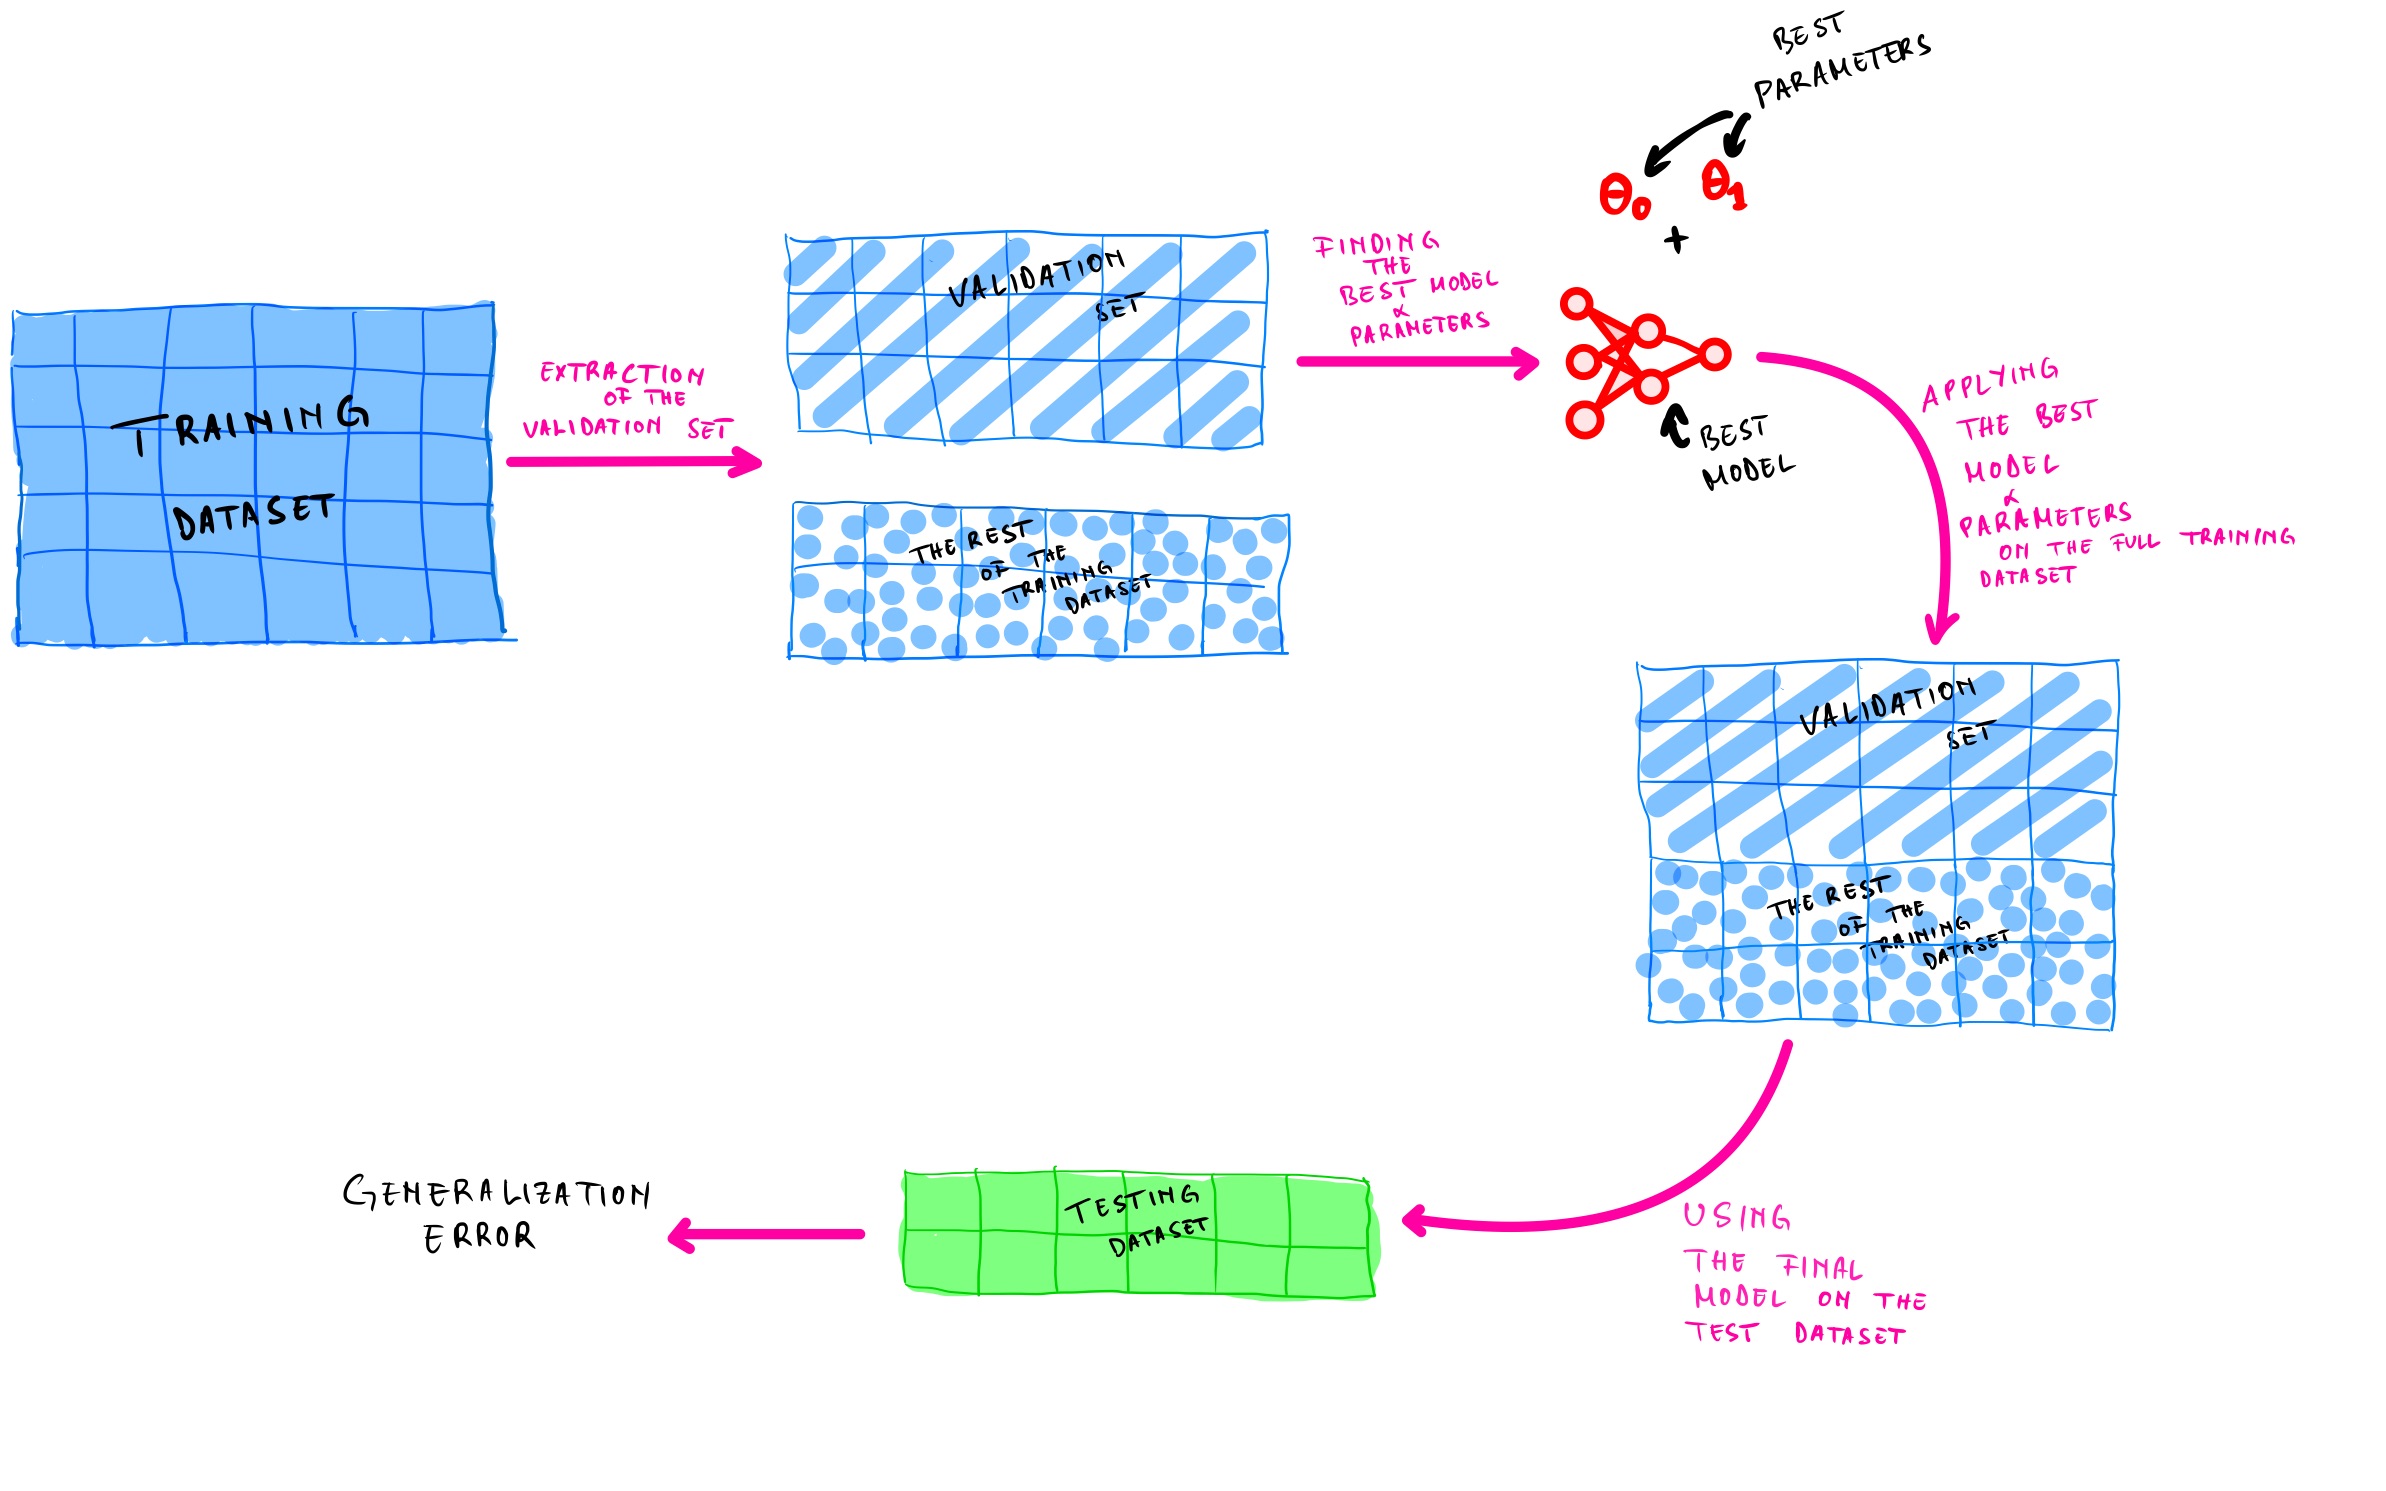 TRAINING
DATASET
EXTRACTION
OF THE
VALIDATION SET
VALIDATION
SET
THE REST
OF THE
TRAINING
DATASET
FINDING
THE
BEST MODEL
&
PARAMETERS
BEST
PARAMETERS
θ0 θ1
+
BEST
MODEL
APPLYING
THE BEST
MODEL
&
PARAMETERS
ON THE FULL TRAINING
DATASET
VALIDATION
SET
THE REST
OF THE
TRAINING
DATASET
USING
THE FINAL
MODEL ON THE
TEST DATASET
TESTING
DATASET
GENERALIZATION
ERROR